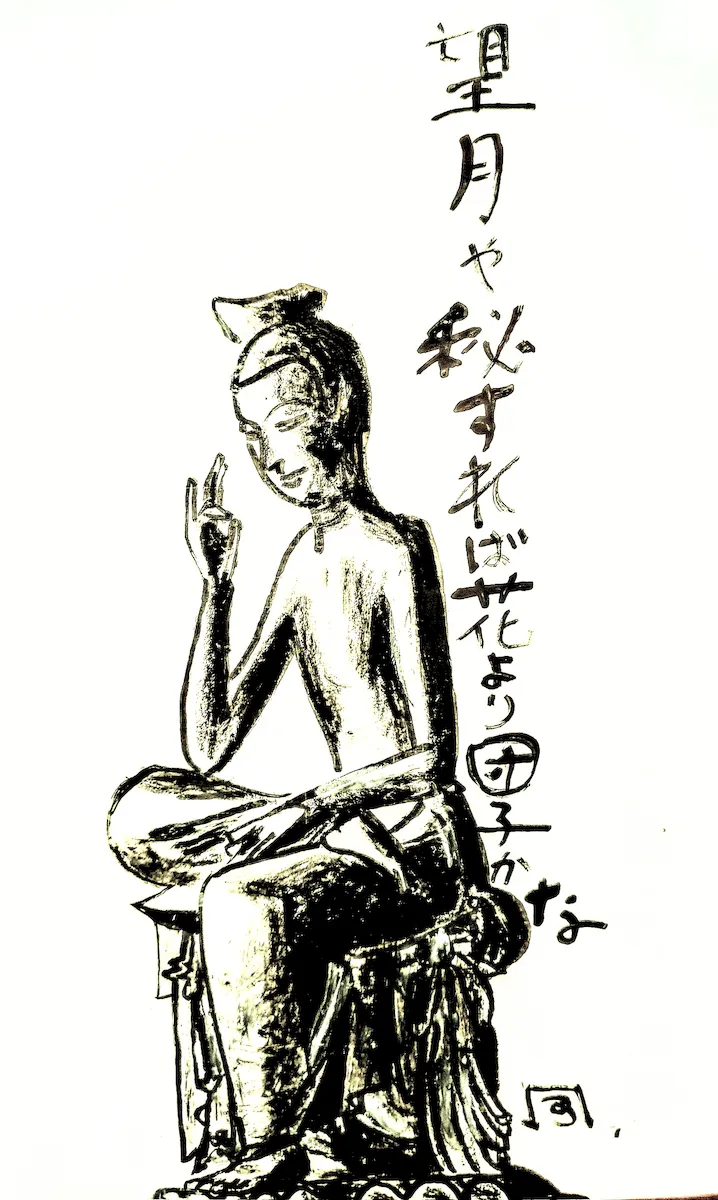 望月や秘すれば花より団子かな